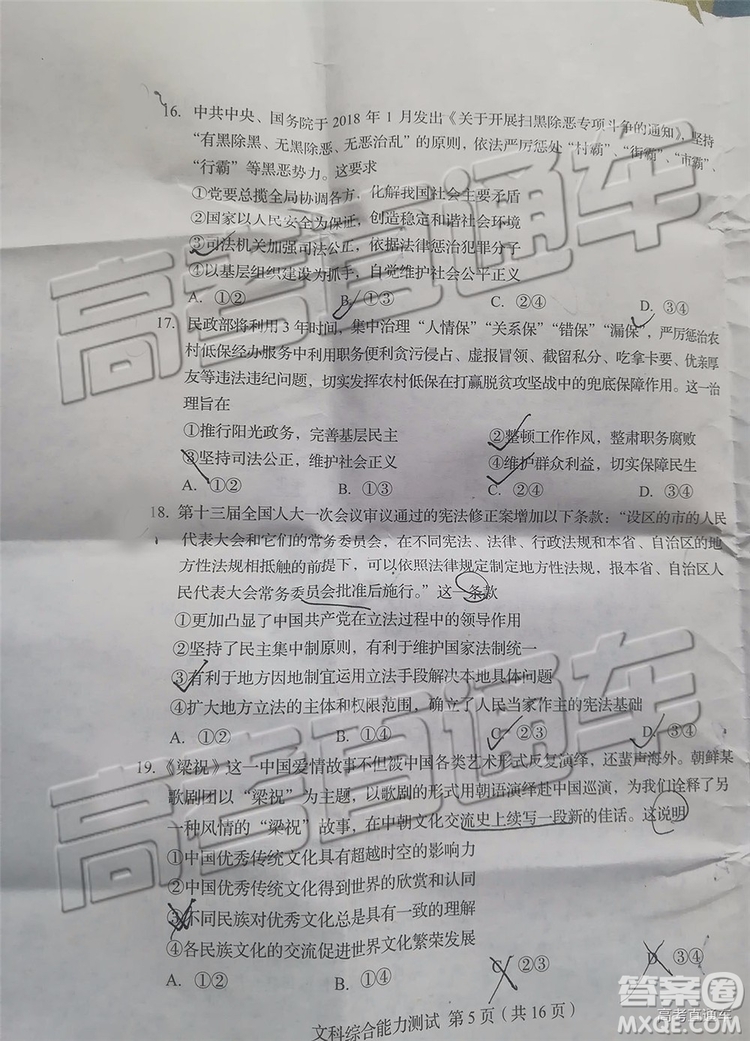 16. 中共中央、国务院于 2018 年 1 月发出《关于开展扫黑除恶专项斗争的通知》，坚持
“有黑除黑、无黑除恶、无恶治乱”的原则，依法严厉惩处“村霸”、“街霸”、“市霸”、
“行霸”等黑恶势力。这要求
①党要总揽全局协调各方，化解我国社会主要矛盾
②国家以人民安全为保证，创造稳定和谐社会环境
③司法机关加强司法公正，依据法律惩治犯罪分子
④以基层组织建设为抓手，自觉维护社会公平正义
A. ①② B. ①③ C. ②④ D. ③④
17. 民政部将利用 3 年时间，集中治理“人情保”“关系保”“错保”“漏保”，严厉惩治农
村低保经办服务中利用职务便利贪污侵占、虚报冒领、截留私分、吃拿卡要、优亲厚
友等违法违纪问题，切实发挥农村低保在打赢脱贫攻坚战中的兜底保障作用。这一治
理旨在
①推行阳光政务，完善基层民主 ②整顿工作作风，整肃职务腐败
③坚持司法公正，维护社会正义 ④维护群众利益，切实保障民生
A. ①② B. ①③ C. ②④ D. ③④
18. 第十三届全国人大一次会议审议通过的宪法修正案增加以下条款：“设区的市的人民
代表大会和它们的常务委员会，在不同宪法、法律、行政法规和本省、自治区的地
方性法规相抵触的前提下，可以依照法律规定制定地方性法规，报本省、自治区人
民代表大会常务委员会批准后施行。”这一条款
①更加凸显了中国共产党在立法过程中的领导作用
②坚持了民主集中制原则，有利于维护国家法制统一
③有利于地方因地制宜运用立法手段解决本地具体问题
④扩大地方立法的主体和权限范围，确立了人民当家作主的宪法基础
A. ①② B. ①④ C. ②③ D. ③④
19. 《梁祝》这一中国爱情故事不但被中国各类艺术形式反复演绎，还蜚声海外。朝鲜某
歌剧团以“梁祝”为主题，以歌剧的形式用朝语演绎赴中国巡演，为我们诠释了另
一种风情的“梁祝”故事，在中朝文化交流史上续写一段新的佳话。这说明
①中国优秀传统文化具有超越时空的影响力
②中国优秀传统文化得到世界的欣赏和认同
③不同民族对优秀文化总是具有一致的理解
④各民族文化的交流促进世界文化繁荣发展
A. ①② B. ①④ C. ②③ D. ③④
文科综合能力测试 第 5 页（共 16 页）
高考直通车
高考直通车
答案圈
高考直通车
MXQE.COM